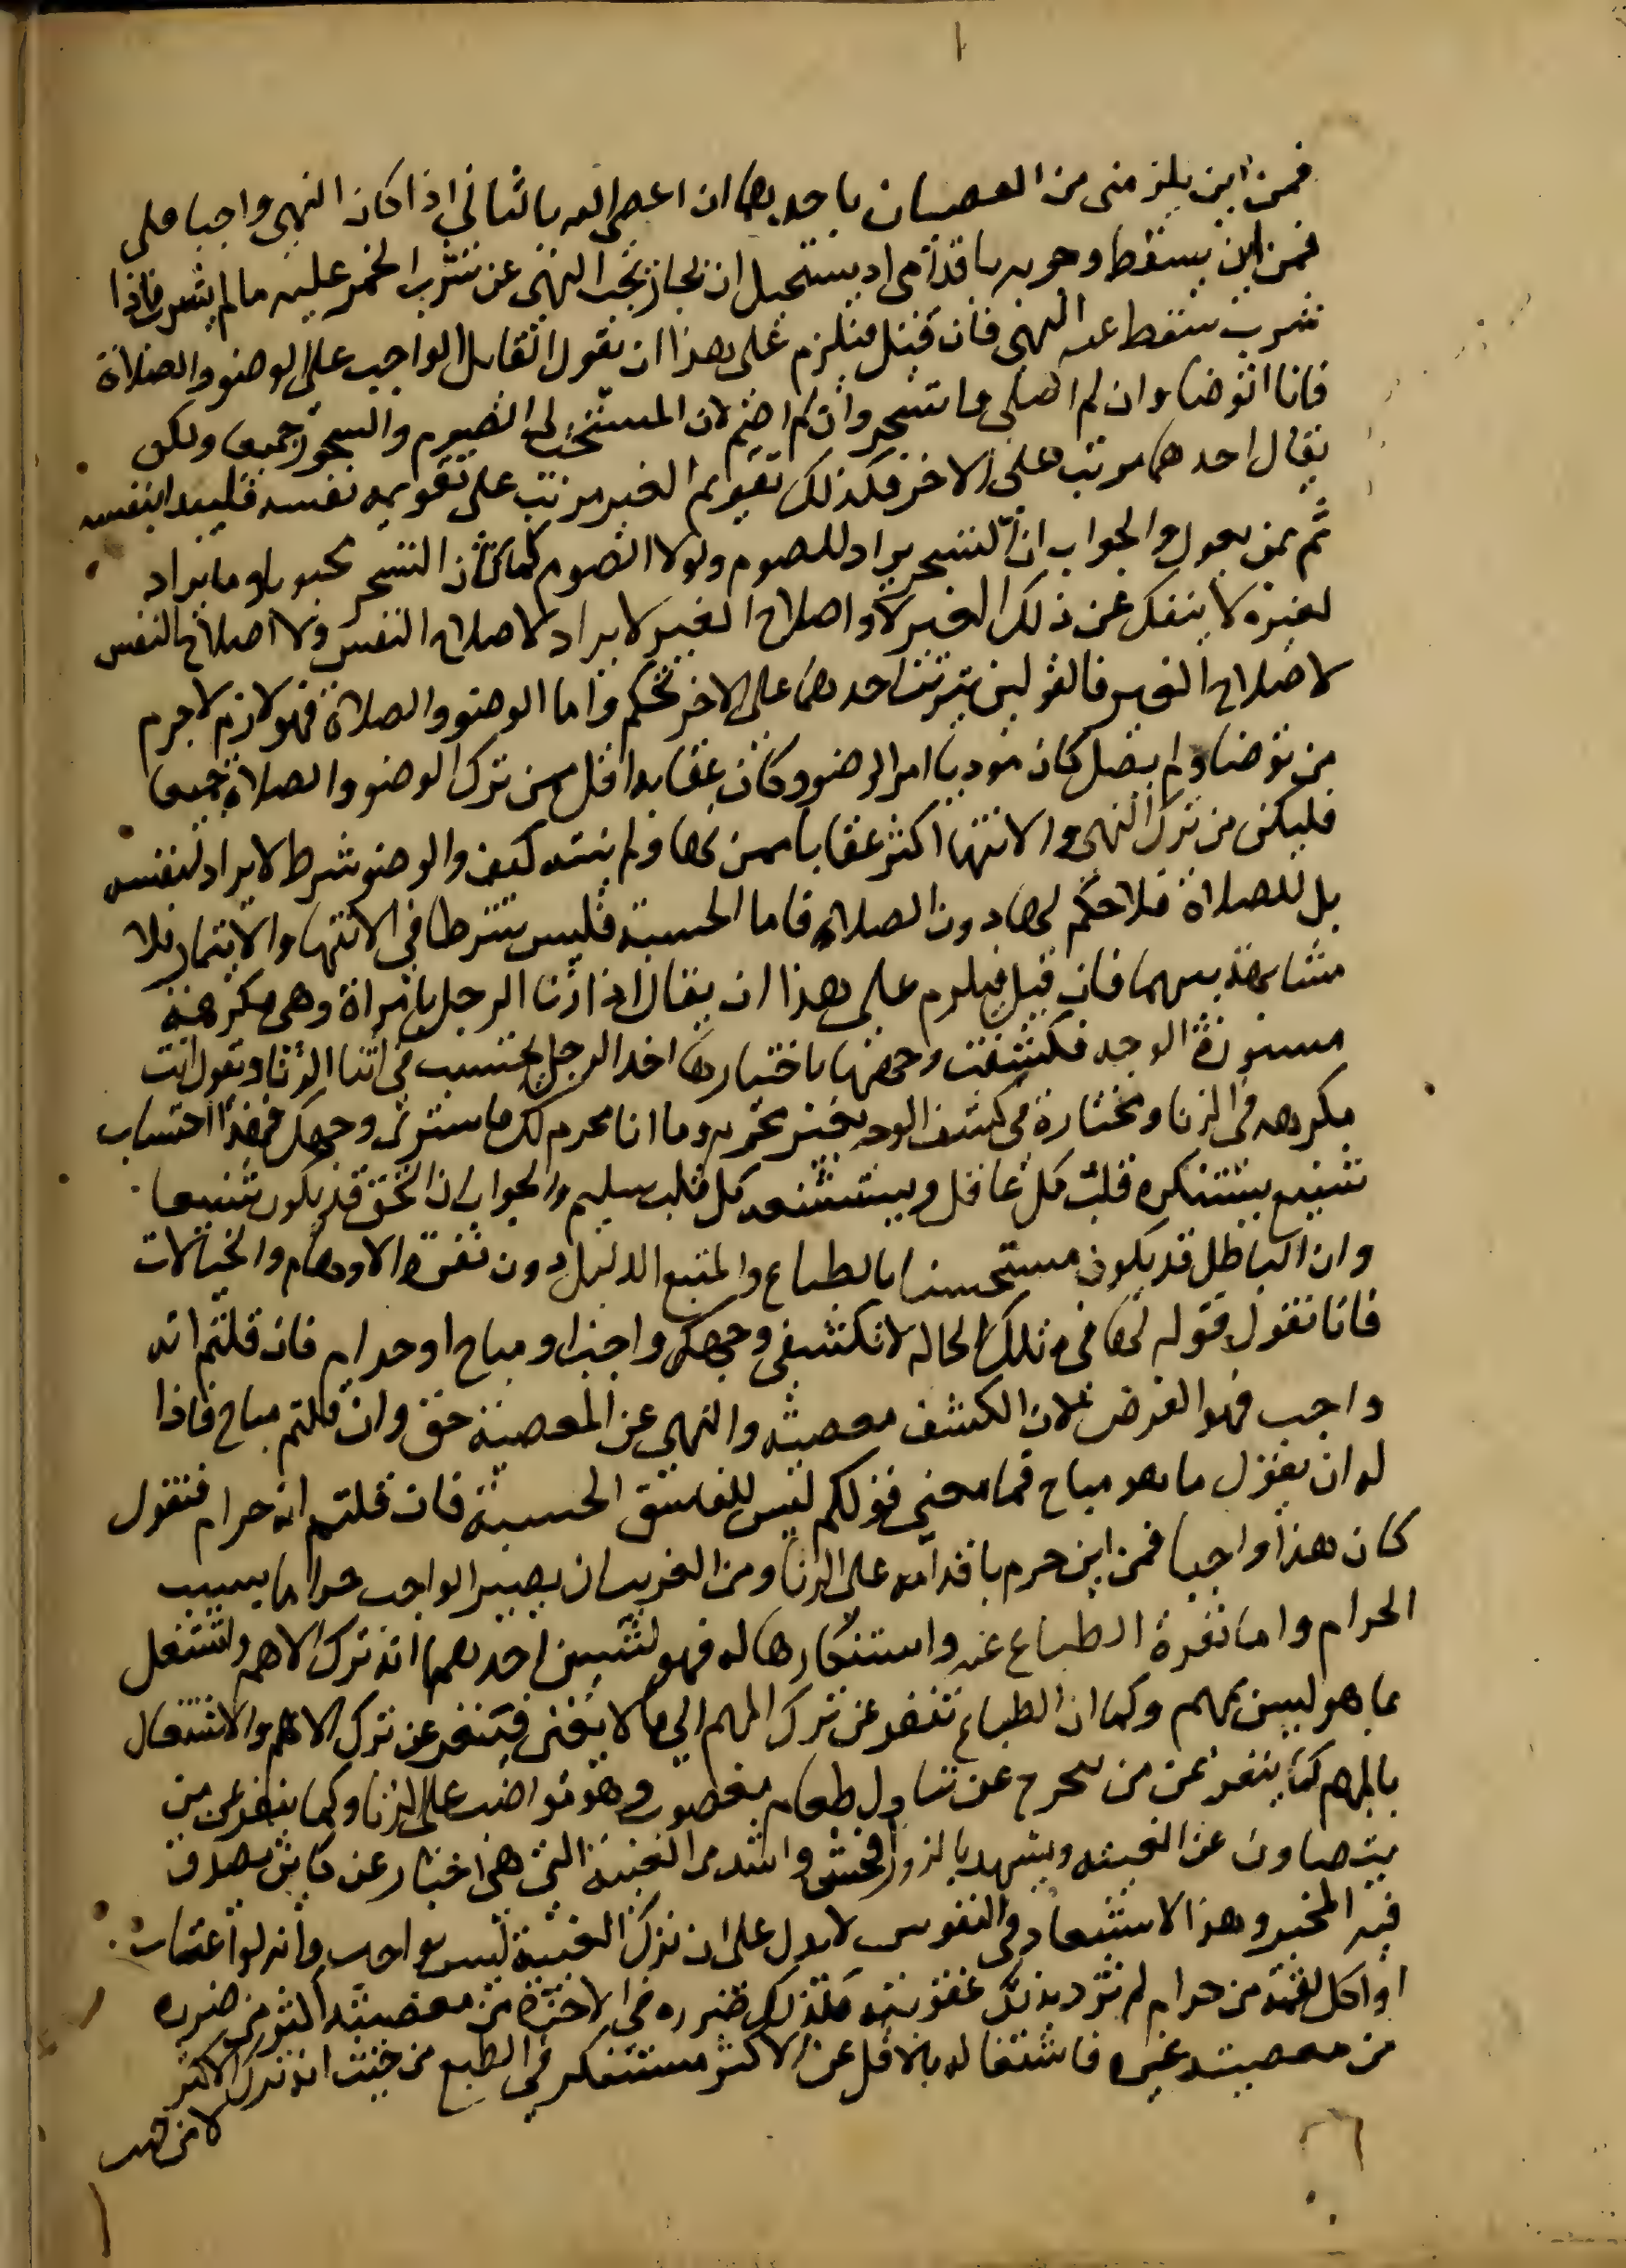 ١
فمن اين يلزمني من العصيان باحدهما ان اعصي الله بالثاني اذا كان النهي واجبا علي
فمن اين يسقط وجوبه باقدامي اذ يستحيل ان يجاز يجب النهي عن شرب الخمر عليه ما لم يشرب فاذا
شرب سقط عنه النهي فان قيل فيلزم على هذا ان يقول القايل الواجب علي الوضو والصلاة
فانا اتوضا وان لم اصلي واتسحر وان لم اصم لان المستحب لي الصوم والسحور جميعا ولكن
يقال احدهما مرتب على الاخر فكذلك تقويم الغير مرتب على تقويمه نفسه فليبدا بنفسه
ثم بمن يعول والجواب ان التسحر يراد للصوم ولولا الصوم لما كان التسحر محبوبا وما يراد
لغيره لا ينفك عن ذلك الغير لا واصلاح الغير لا يراد لاصلاح النفس ولا اصلاح النفس
لاصلاح الغير فالقول بترتب احدهما على الاخر تحكم واما الوضو والصلاة فهو لازم لا جرم
من توضا ولم يصل كان موديا امر الوضو وكان عقابه اقل من ترك الوضو والصلاة جميعا
فليكن من ترك النهي والانتها اكثر عقابا ممن نهى ولم ينته كيف والوضو شرط لا يراد لنفسه
بل للصلاة فلا حكم لها دون الصلاة فاما الحسبة فليس شرطا في الانتها والايتمار فلا
مشابهة بينهما فان قيل فيلزم على هذا ان يقال اذا زنا الرجل بامراة وهي مكرهة
مستورة الوجه فكشفت وجهها باختيارها اخذ الرجل يحتسب في اثنا الزنا ويقول انت
مكرهه في الزنا ومختارة في كشف الوجه لغير محرم وما انا محرم لك فاستري وجهك فهذا احتساب
شنيع يستنكره قلب كل عاقل ويستشنعه كل قلب سليم والجواب ان الحق قد يكون شنيعا
وان الباطل قد يكون مستحسنا بالطباع والمتبع الدليل دون نفرة الاوهام والخيالات
فانا نقول قوله لها في تلك الحاله لا تكشفي وجهك واجب او مباح او حرام فان قلتم انه
واجب فهو الغرض لان الكشف معصية والنهي عن المعصية حق وان قلتم مباح فاذا
له ان يقول ما هو مباح فما معنى قولكم ليس للفاسق الحسبة فان قلتم انه حرام فنقول
كان هذا واجبا فمن اين حرم باقدامه على الزنا ومن الغريب ان يصير الواجب حراما بسبب
الحرام واما نفرة الطباع عنه واستنكارها له فهو لشيين احدهما انه ترك الاهم واشتغل
بما هو ليس بمهم وكما ان الطباع تنفر عن ترك المهم الى ما لا يعني فتنفر عن ترك الاهم والاشتغال
بالمهم كما ينفر عن من يتحرج عن تناول طعام مغصوب وهو مواضب على الزنا وكما ينفر عن من
يتصاون عن الغيبه ويشهد بالزور افحش واشد من الغيبة التي هي اخبار عن كاين يصدق
فيه المخبر وهذا الاستبعاد في النفوس لا يدل على ان ترك الغيبة ليس بواجب وانه لو اغتاب
او اكل لقمة من حرام لم تزد بذلك عقوبته فكذلك ضرره في الاخرة من معصيته اكثر من ضرره
من معصية غيره فاشتغاله بالاقل عن الاكثر مستنكر في الطبع من حيث انه ترك الاكثر
لا من حيث